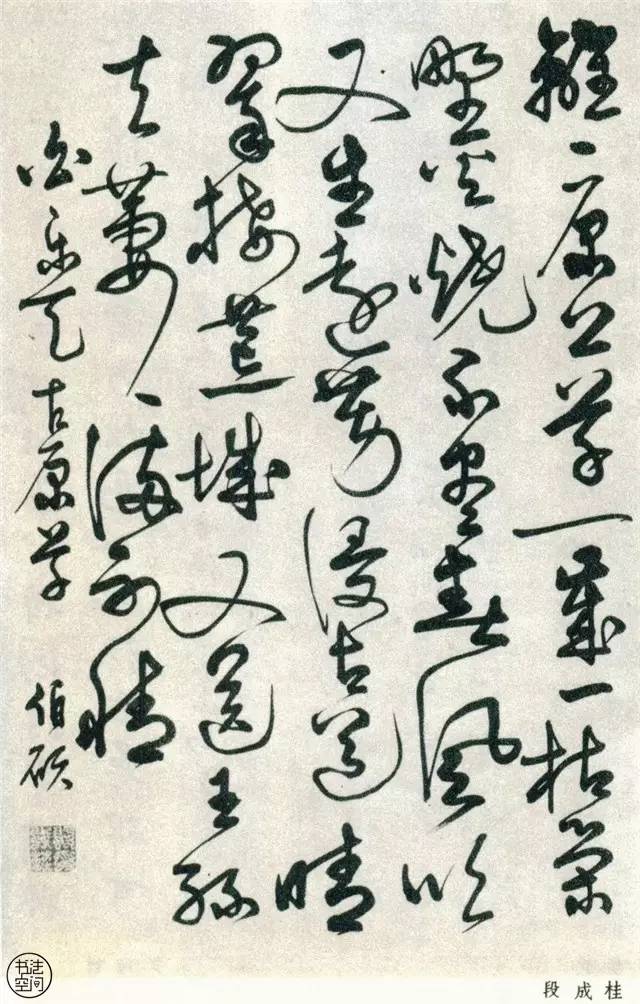 離〻原上草一歲一枯榮
野火燒不盡春風吹
又生遠芳侵古道晴
翠接荒城又送王孫
去萋〻滿別情
白樂天古原草 伯碩
书法空间
段成桂